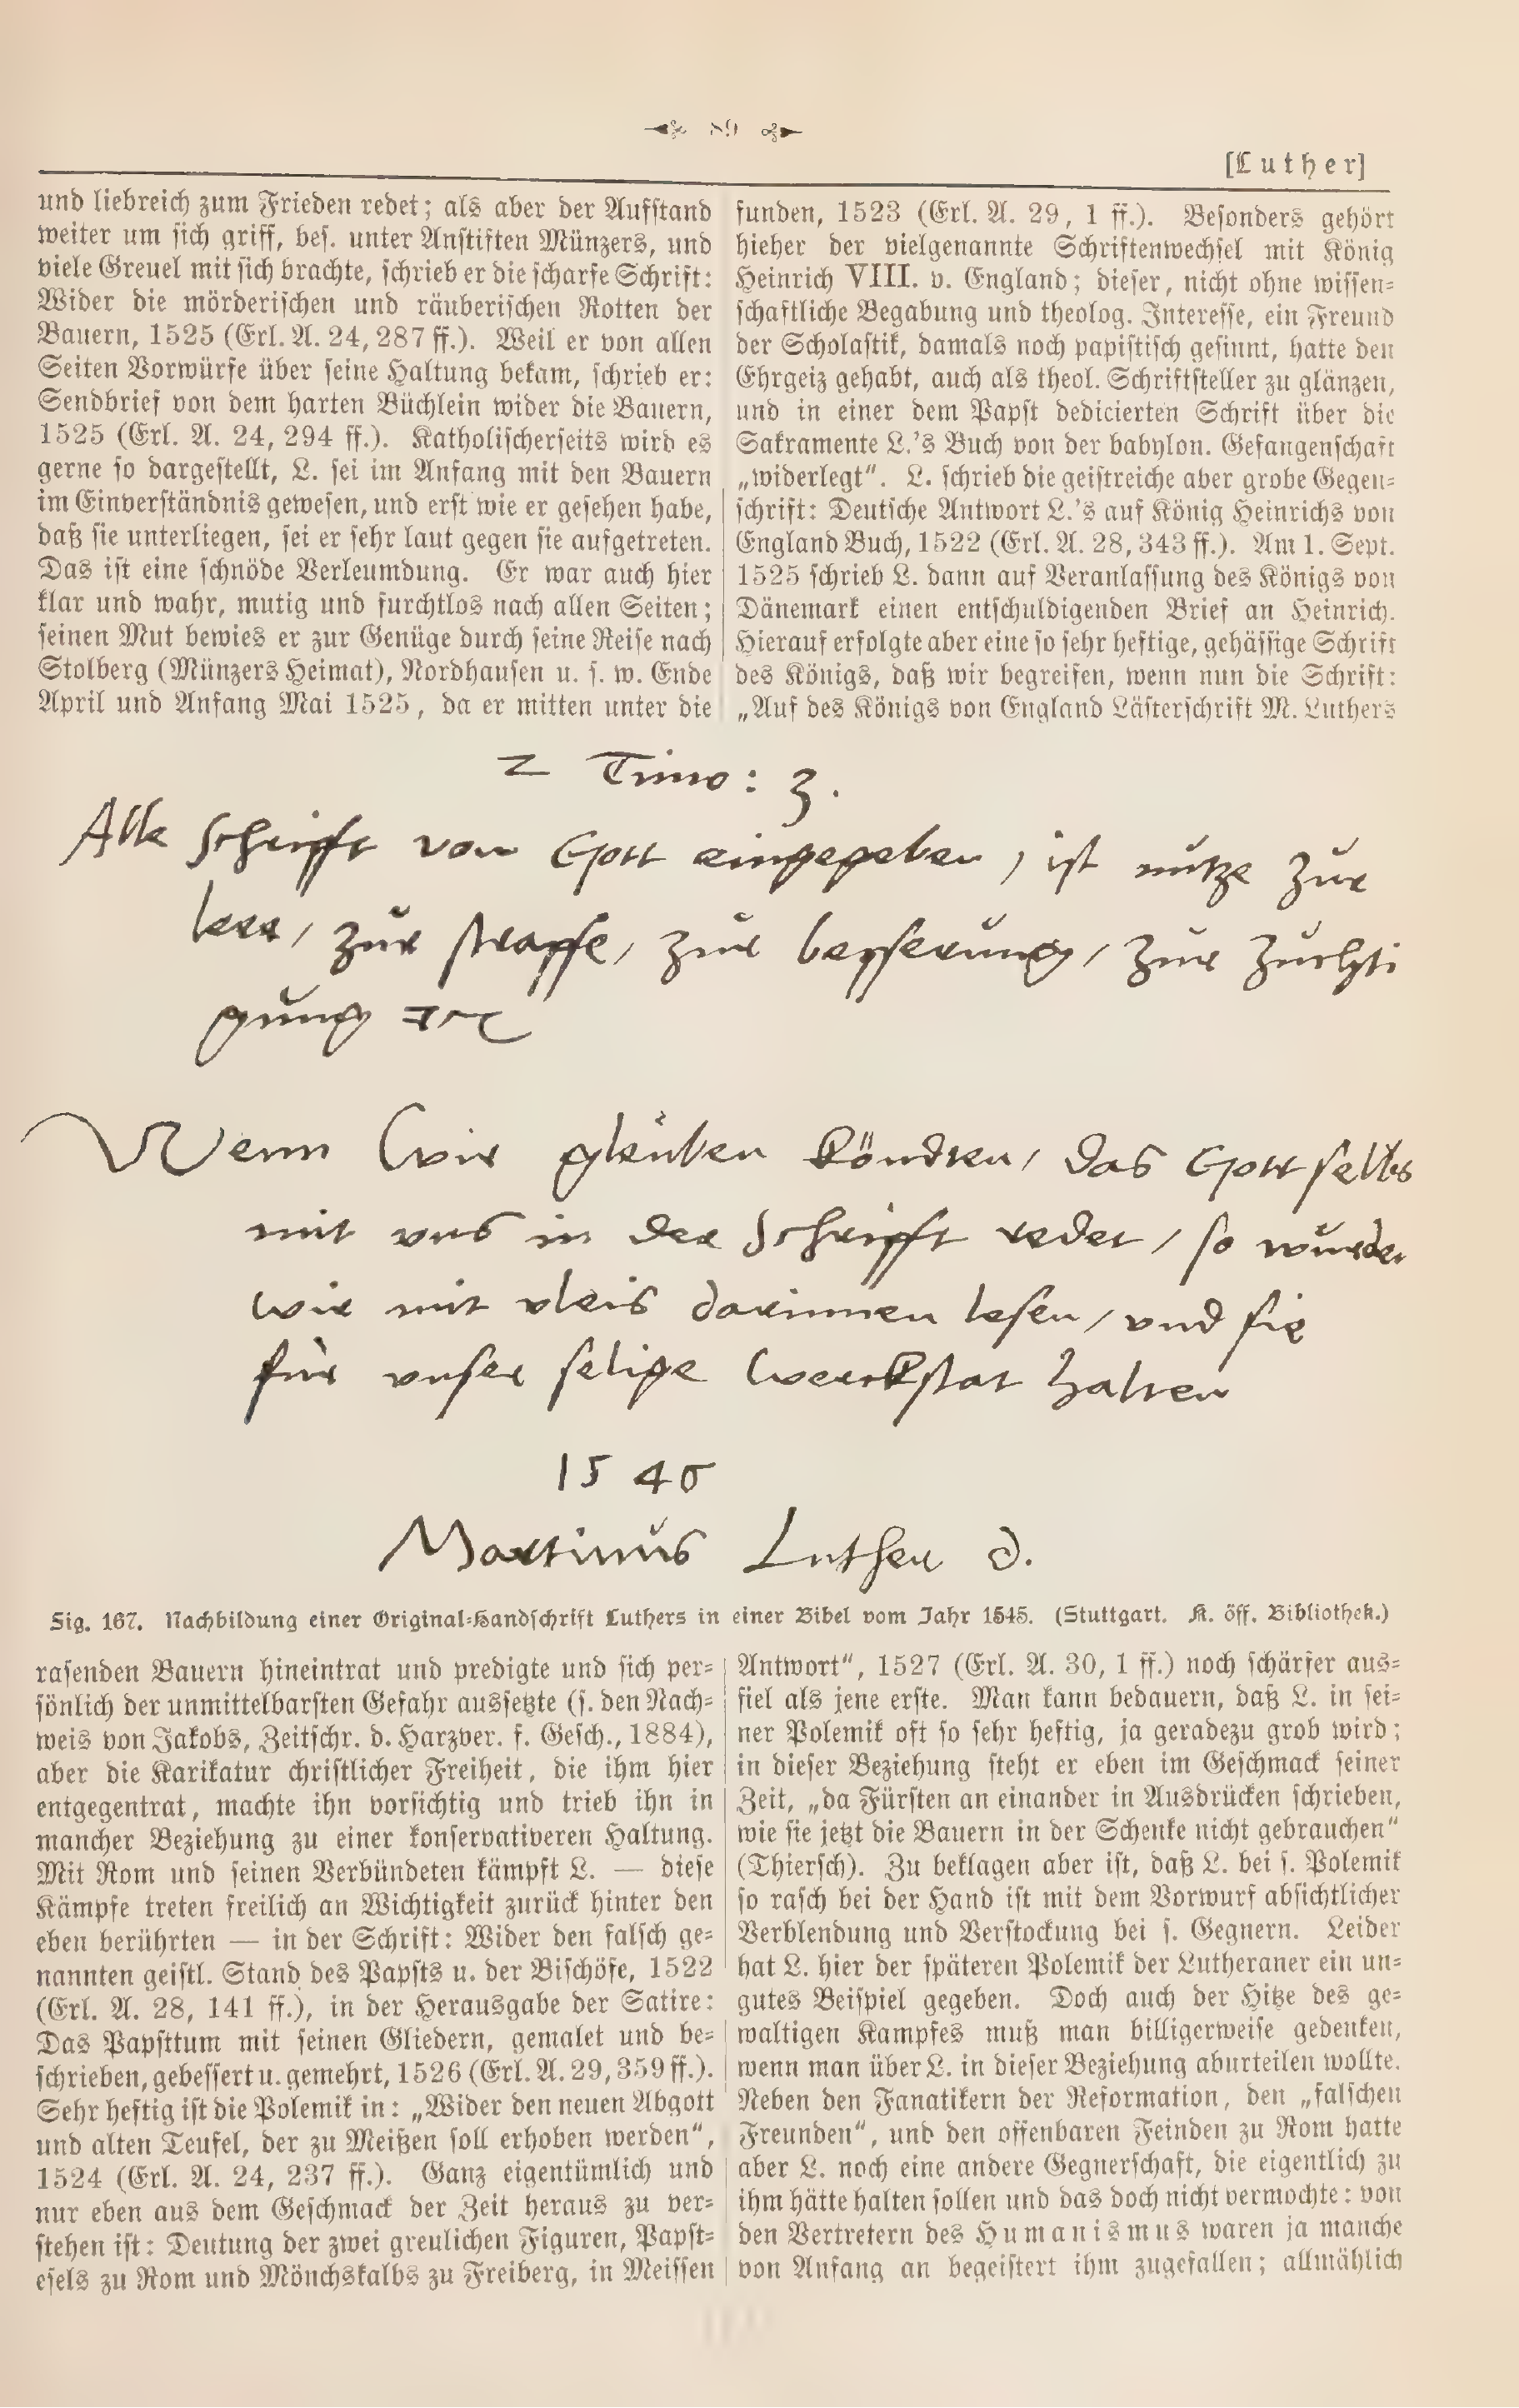 89
[Luther]
und liebreich zum Frieden redet; als aber der Aufstand
weiter um sich griff, bes. unter Anstiften Münzers, und
viele Greuel mit sich brachte, schrieb er die scharfe Schrift:
Wider die mörderischen und räuberischen Rotten der
Bauern, 1525 (Erl. A. 24, 287 ff.). Weil er von allen
Seiten Vorwürfe über seine Haltung bekam, schrieb er:
Sendbrief von dem harten Büchlein wider die Bauern,
1525 (Erl. A. 24, 294 ff.). Katholischerseits wird es
gerne so dargestellt, L. sei im Anfang mit den Bauern
im Einverständnis gewesen, und erst wie er gesehen habe,
daß sie unterliegen, sei er sehr laut gegen sie aufgetreten.
Das ist eine schnöde Verleumdung. Er war auch hier
klar und wahr, mutig und furchtlos nach allen Seiten;
seinen Mut bewies er zur Genüge durch seine Reise nach
Stolberg (Münzers Heimat), Nordhausen u. s. w. Ende
April und Anfang Mai 1525, da er mitten unter die
funden, 1523 (Erl. A. 29, 1 ff.). Besonders gehört
hieher der vielgenannte Schriftenwechsel mit König
Heinrich VIII. v. England; dieser, nicht ohne wissen-
schaftliche Begabung und theolog. Interesse, ein Freund
der Scholastik, damals noch papistisch gesinnt, hatte den
Ehrgeiz gehabt, auch als theol. Schriftsteller zu glänzen,
und in einer dem Papst dedicierten Schrift über die
Sakramente L.'s Buch von der babylon. Gefangenschaft
„widerlegt“. L. schrieb die geistreiche aber grobe Gegen-
schrift: Deutsche Antwort L.'s auf König Heinrichs von
England Buch, 1522 (Erl. A. 28, 343 ff.). Am 1. Sept.
1525 schrieb L. dann auf Veranlassung des Königs von
Dänemark einen entschuldigenden Brief an Heinrich.
Hierauf erfolgte aber eine so sehr heftige, gehässige Schrift
des Königs, daß wir begreifen, wenn nun die Schrift:
„Auf des Königs von England Lästerschrift M. Luthers
2 Timo: 3.
Alle Schrifft von Gott eingegeben, ist nutze zur
lere/ zur straffe/ zur besserung/ zur zuchti
gung
Wenn wir gleuben köndten/ das Gott selbs
mit uns in der Schrifft redet/ so würden
wir mit vleis darinnen lesen/ vnd sie
für vnser selige werckstat halten
Martinus Luther d.
Fig. 167. Nachbildung einer Original-Handschrift Luthers in einer Bibel vom Jahr 1545. (Stuttgart. K. öff. Bibliothek.)
rasenden Bauern hineintrat und predigte und sich per-
sönlich der unmittelbarsten Gefahr aussetzte (s. den Nach-
weis von Jakobs, Zeitschr. d. Harzver. f. Gesch., 1884),
aber die Karikatur christlicher Freiheit, die ihm hier
entgegentrat, machte ihn vorsichtig und trieb ihn in
mancher Beziehung zu einer konservativeren Haltung.
Mit Rom und seinen Verbündeten kämpft L. — diese
Kämpfe treten freilich an Wichtigkeit zurück hinter den
eben berührten — in der Schrift: Wider den falsch ge-
nannten geistl. Stand des Papsts u. der Bischöfe, 1522
(Erl. A. 28, 141 ff.), in der Herausgabe der Satire:
Das Papsttum mit seinen Gliedern, gemalet und be-
schrieben, gebessert u. gemehrt, 1526 (Erl. A. 29, 359 ff.).
Sehr heftig ist die Polemik in: „Wider den neuen Abgott
und alten Teufel, der zu Meißen soll erhoben werden“,
1524 (Erl. A. 24, 237 ff.). Ganz eigentümlich und
nur eben aus dem Geschmack der Zeit heraus zu ver-
stehen ist: Deutung der zwei greulichen Figuren, Papst-
esels zu Rom und Mönchskalbs zu Freiberg, in Meissen
Antwort“, 1527 (Erl. A. 30, 1 ff.) noch schärfer aus-
fiel als jene erste. Man kann bedauern, daß L. in sei-
ner Polemik oft so sehr heftig, ja geradezu grob wird;
in dieser Beziehung steht er eben im Geschmack seiner
Zeit, „da Fürsten an einander in Ausdrücken schrieben,
wie sie jetzt die Bauern in der Schenke nicht gebrauchen“
(Thiersch). Zu beklagen aber ist, daß L. bei s. Polemik
so rasch bei der Hand ist mit dem Vorwurf absichtlicher
Verblendung und Verstockung bei s. Gegnern. Leider
hat L. hier der späteren Polemik der Lutheraner ein un-
gutes Beispiel gegeben. Doch auch der Hitze des ge-
waltigen Kampfes muß man billigerweise gedenken,
wenn man über L. in dieser Beziehung aburteilen wollte.
Neben den Fanatikern der Reformation, den „falschen
Freunden“, und den offenbaren Feinden zu Rom hatte
aber L. noch eine andere Gegnerschaft, die eigentlich zu
ihm hätte halten sollen und das doch nicht vermochte: von
den Vertretern des Humanismus waren ja manche
von Anfang an begeistert ihm zugefallen; allmählich